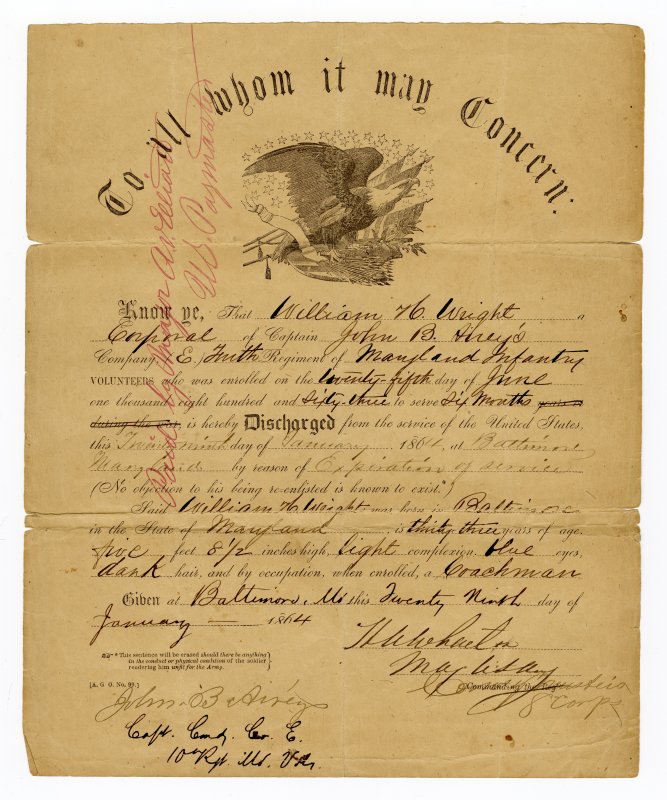 To all whom it may Concern:
Paid by Major A. V. Elliott
US Paymaster
Know ye, That William H. Wright a
Corporal of Captain John B. Airey's
Company, (E.) Tenth Regiment of Maryland Infantry
VOLUNTEERS who was enrolled on the twenty-fifth day of June
one thousand eight hundred and Sixty-three to serve Six Months years or
during the war, is hereby Discharged from the service of the United States,
this Twenty ninth day of January 1864, at Baltimore
Maryland by reason of Expiration of service
(No objection to his being re-enlisted is known to exist.*)
Said William H Wright was born in Baltimore
in the State of Maryland is thirty three years of age,
five feet 8 1/2 inches high, light complexion, blue eyes,
dark hair, and by occupation, when enrolled, a Coachman
Given at Baltimore, Md this Twenty Ninth day of
January 1864
* This sentence will be erased should there be anything
in the conduct or physical condition of the soldier
rendering him unfit for the Army.
[A. G. O. No. 99.]
Commanding the Reg't
8 Corps
John B Airey
Capt. Comdg. Co. E.
10th Rgt. Md. Vols.